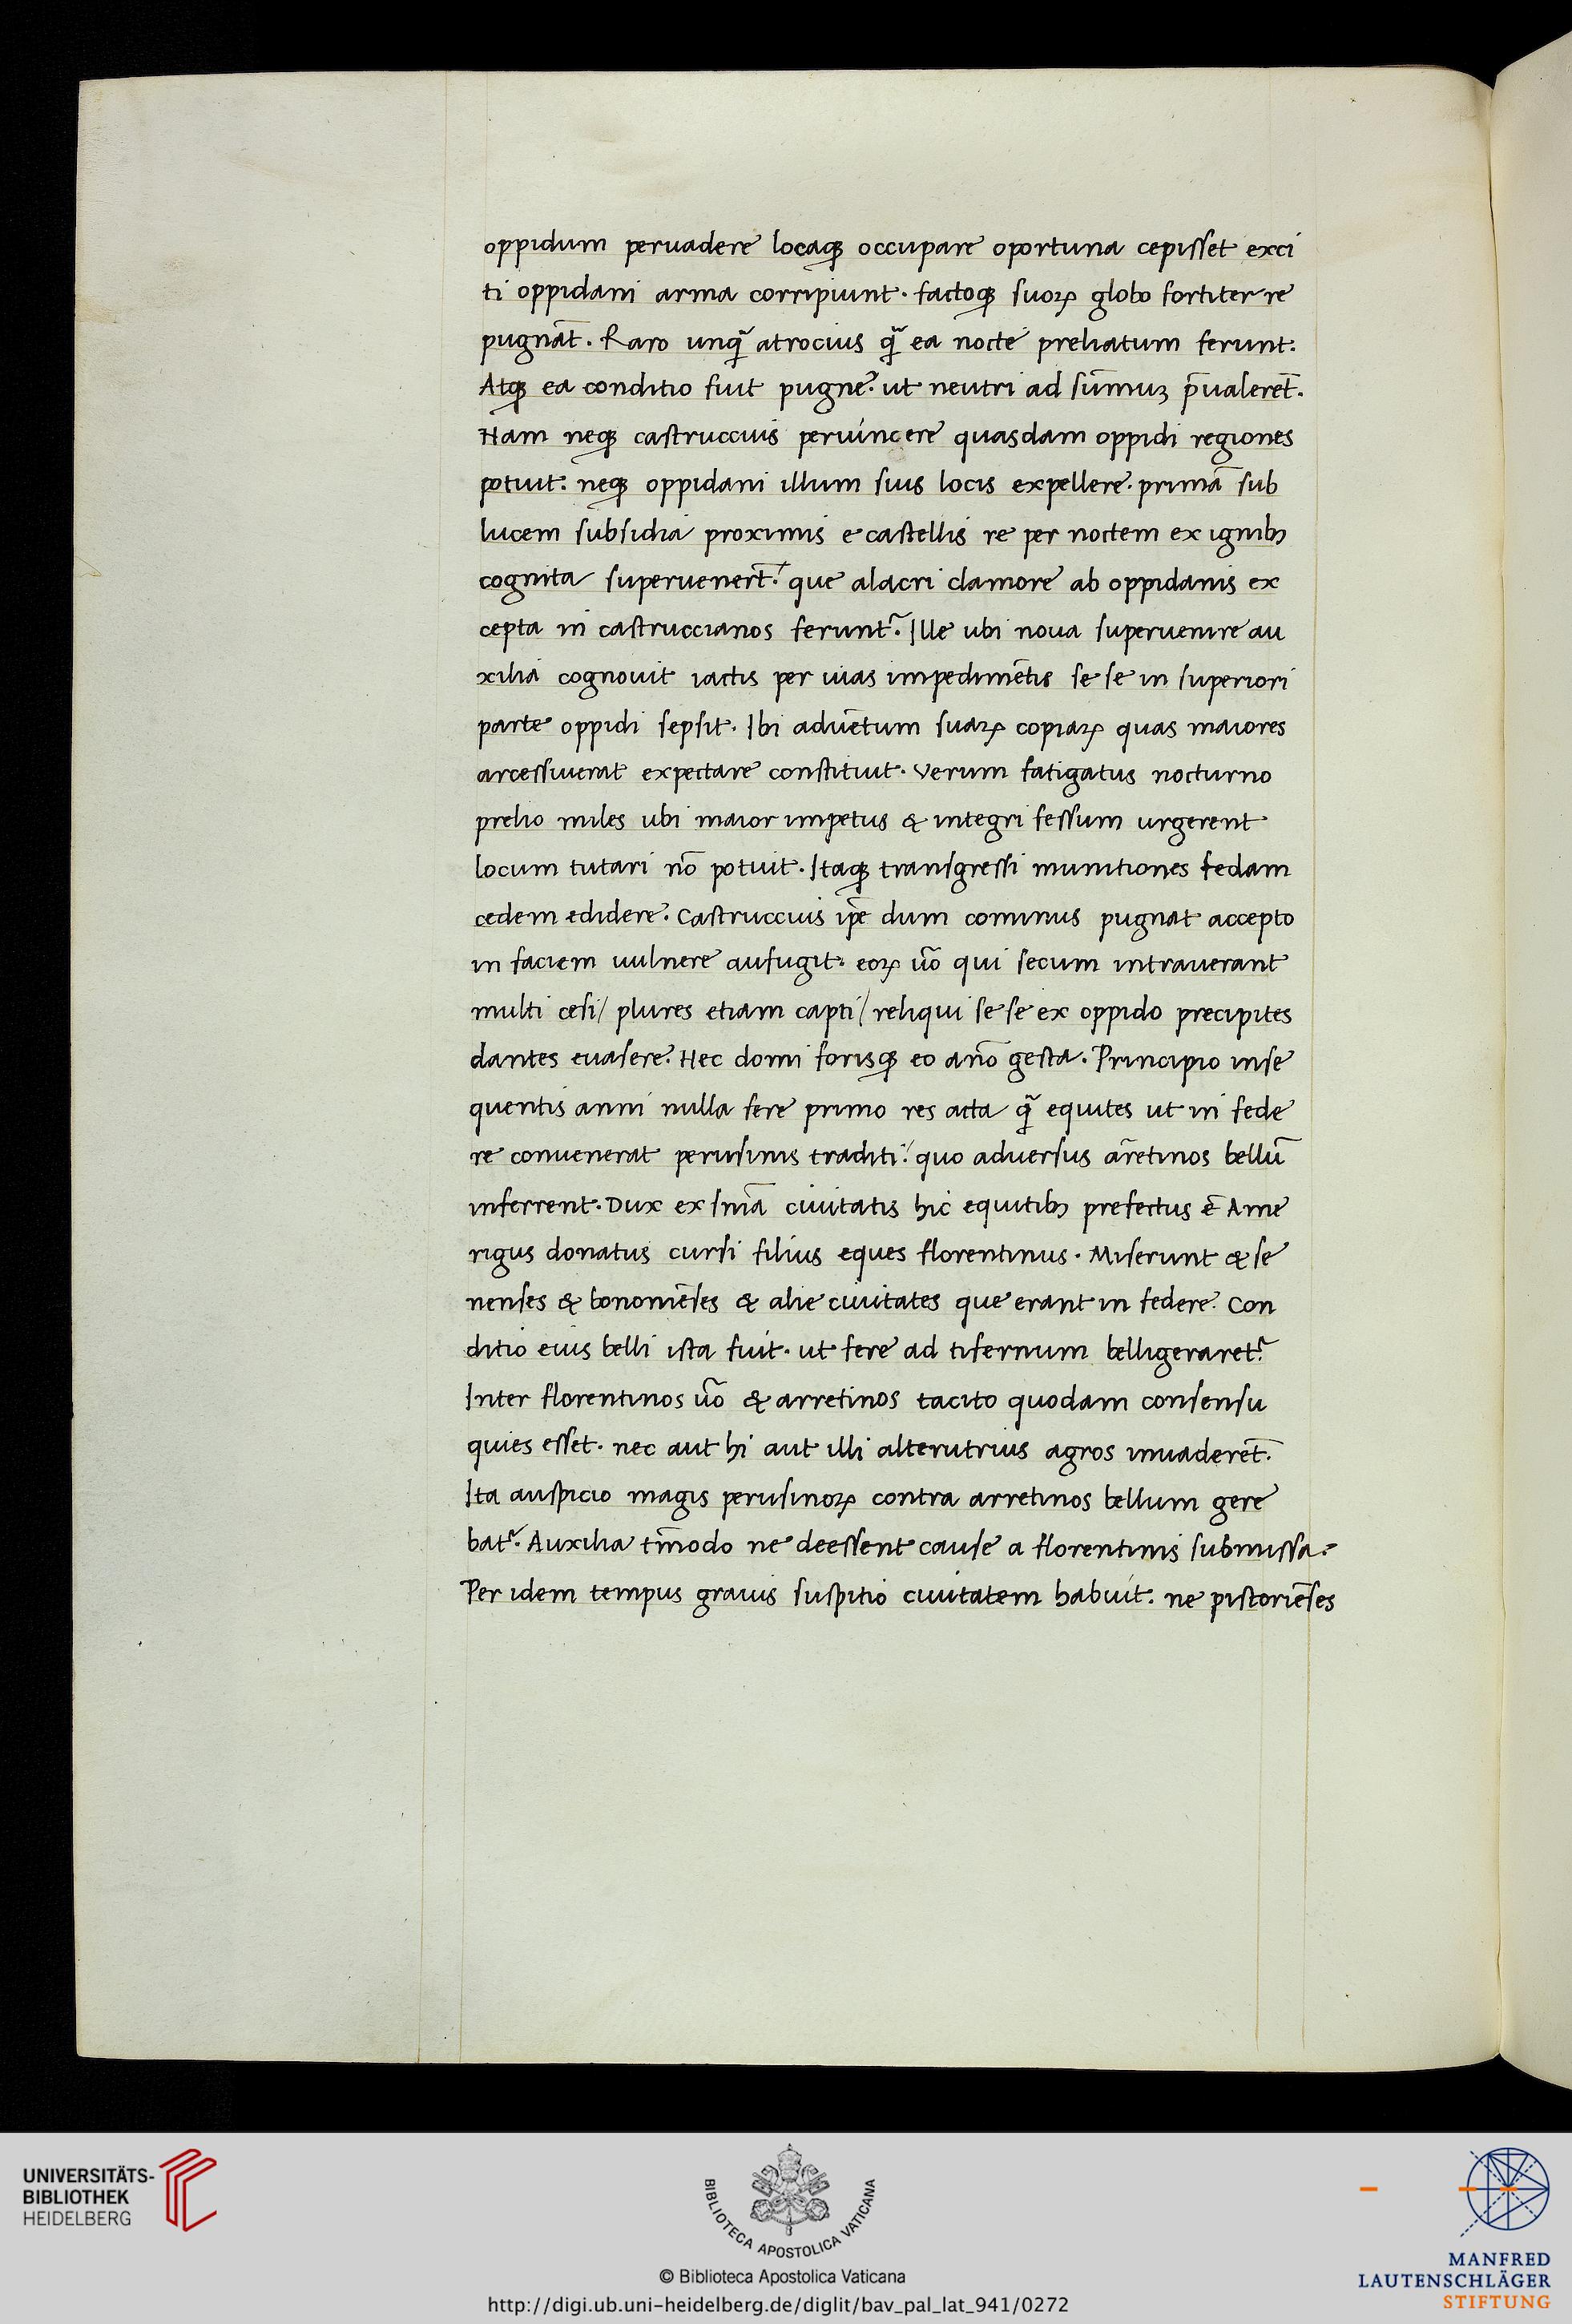 oppidum peruadere locaqꝫ occupare oportuna cepisset exci
ti oppidani arma corripiunt. factoqꝫ suoꝝ globo fortiter re
pugnāt. Raro unq̄ atrocius q̄ ea nocte preliatum ferunt.
Atqꝫ ea conditio fuit pugne. ut neutri ad sūmuꝫ p̄ualerēt.
Nam neqꝫ castruccius peruincere quasdam oppidi regiones
potuit: neqꝫ oppidani illum suis locis expellere. primā sub
lucem subsidia proximis e castellis re per noctem ex ignibꝫ
cognita superuenert̄. que alacri clamore ab oppidanis ex
cepta in castruccianos ferunt᷑. Ille ubi noua superuenire au
xilia cognouit iactis per uias impedimētis se se in superiori
parte oppidi sepsit. Ibi aduētum suaꝝ copiaꝝ quas maiores
arcessiuerat expectare constituit. Verum fatigatus nocturno
prelio miles ubi maior impetus & integri fessum urgerent
locum tutari nō potuit. Itaqꝫ transgressi munitiones fedam
cedem edidere. Castruccius ip̄e dum cominus pugnat accepto
in faciem uulnere aufugit. eoꝝ u̅o qui secum intrauerant
multi cesi/ plures etiam capti/ reliqui se se ex oppido precipites
dantes euasere. Hec domi forisqꝫ eo an̄o gesta. Principio inse
quentis anni nulla fere primo res acta q̄ equites ut in fede
re conuenerat perusinis traditi. quo aduersus ar̄etinos bellū
inferrent. Dux ex sn̄ia ciuitatis hic equitibꝫ prefectus ē Ame
rigus donatus cursi filius eques florentinus. Miserunt & se
nenses & bononiēses & alie ciuitates que erant in federe. Con
ditio eius belli ista fuit. ut fere ad tifernum belligeraret᷑.
Inter florentinos u̅o & arretinos tacito quodam consensu
quies esset. nec aut hi aut illi alterutrius agros inuaderēt.
Ita auspicio magis perusinoꝝ contra arretinos bellum gere
bat᷑. Auxilia tm̄modo ne deessent cause a florentinis submissa.
Per idem tempus grauis suspitio ciuitatem habuit. ne pistoriēses
UNIVERSITÄTS-
BIBLIOTHEK
HEIDELBERG
BIBLIOTECA APOSTOLICA VATICANA
© Biblioteca Apostolica Vaticana
http://digi.ub.uni-heidelberg.de/diglit/bav_pal_lat_941/0272
MANFRED
LAUTENSCHLÄGER
STIFTUNG